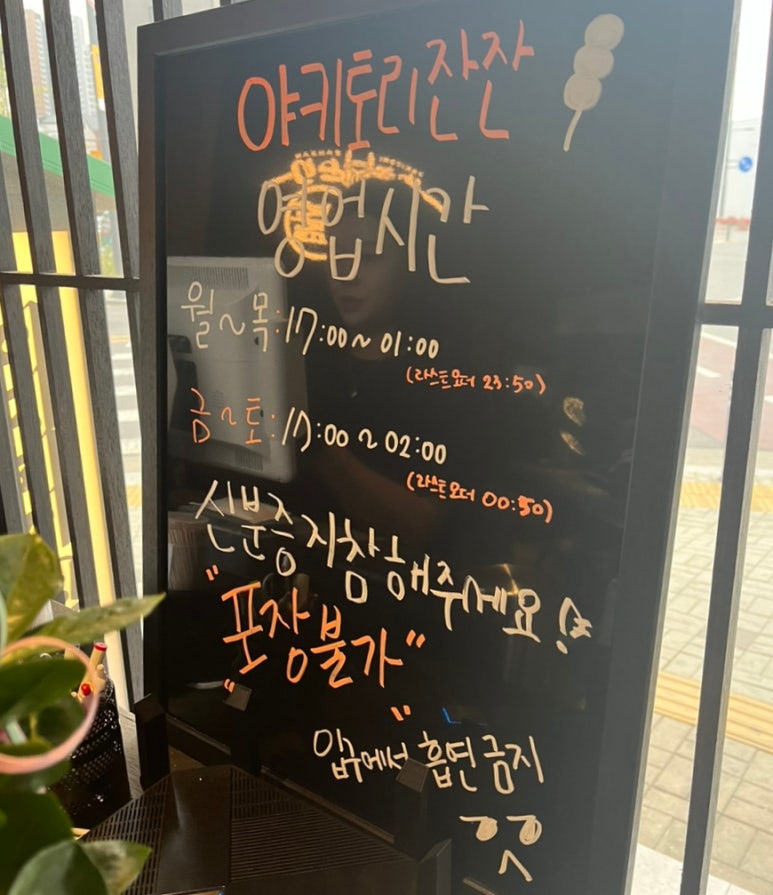 야키토리잔잔
영업시간
월~목:17:00~01:00
(라스트오더 23:50)
금~토:17:00~02:00
(라스트오더 00:50)
신분증 지참해주세요!
"포장불가"
입구에서 흡연금지